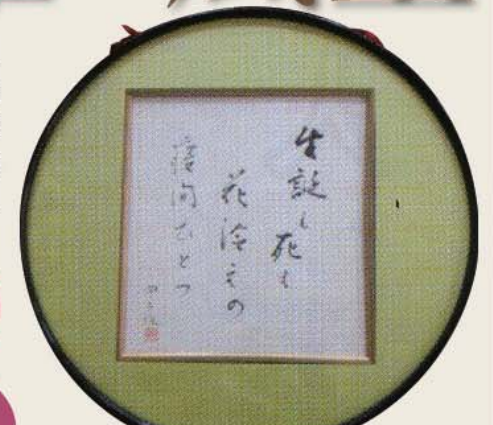 生誕も死も
花冷えの
寝間ひとつ
甲子雄